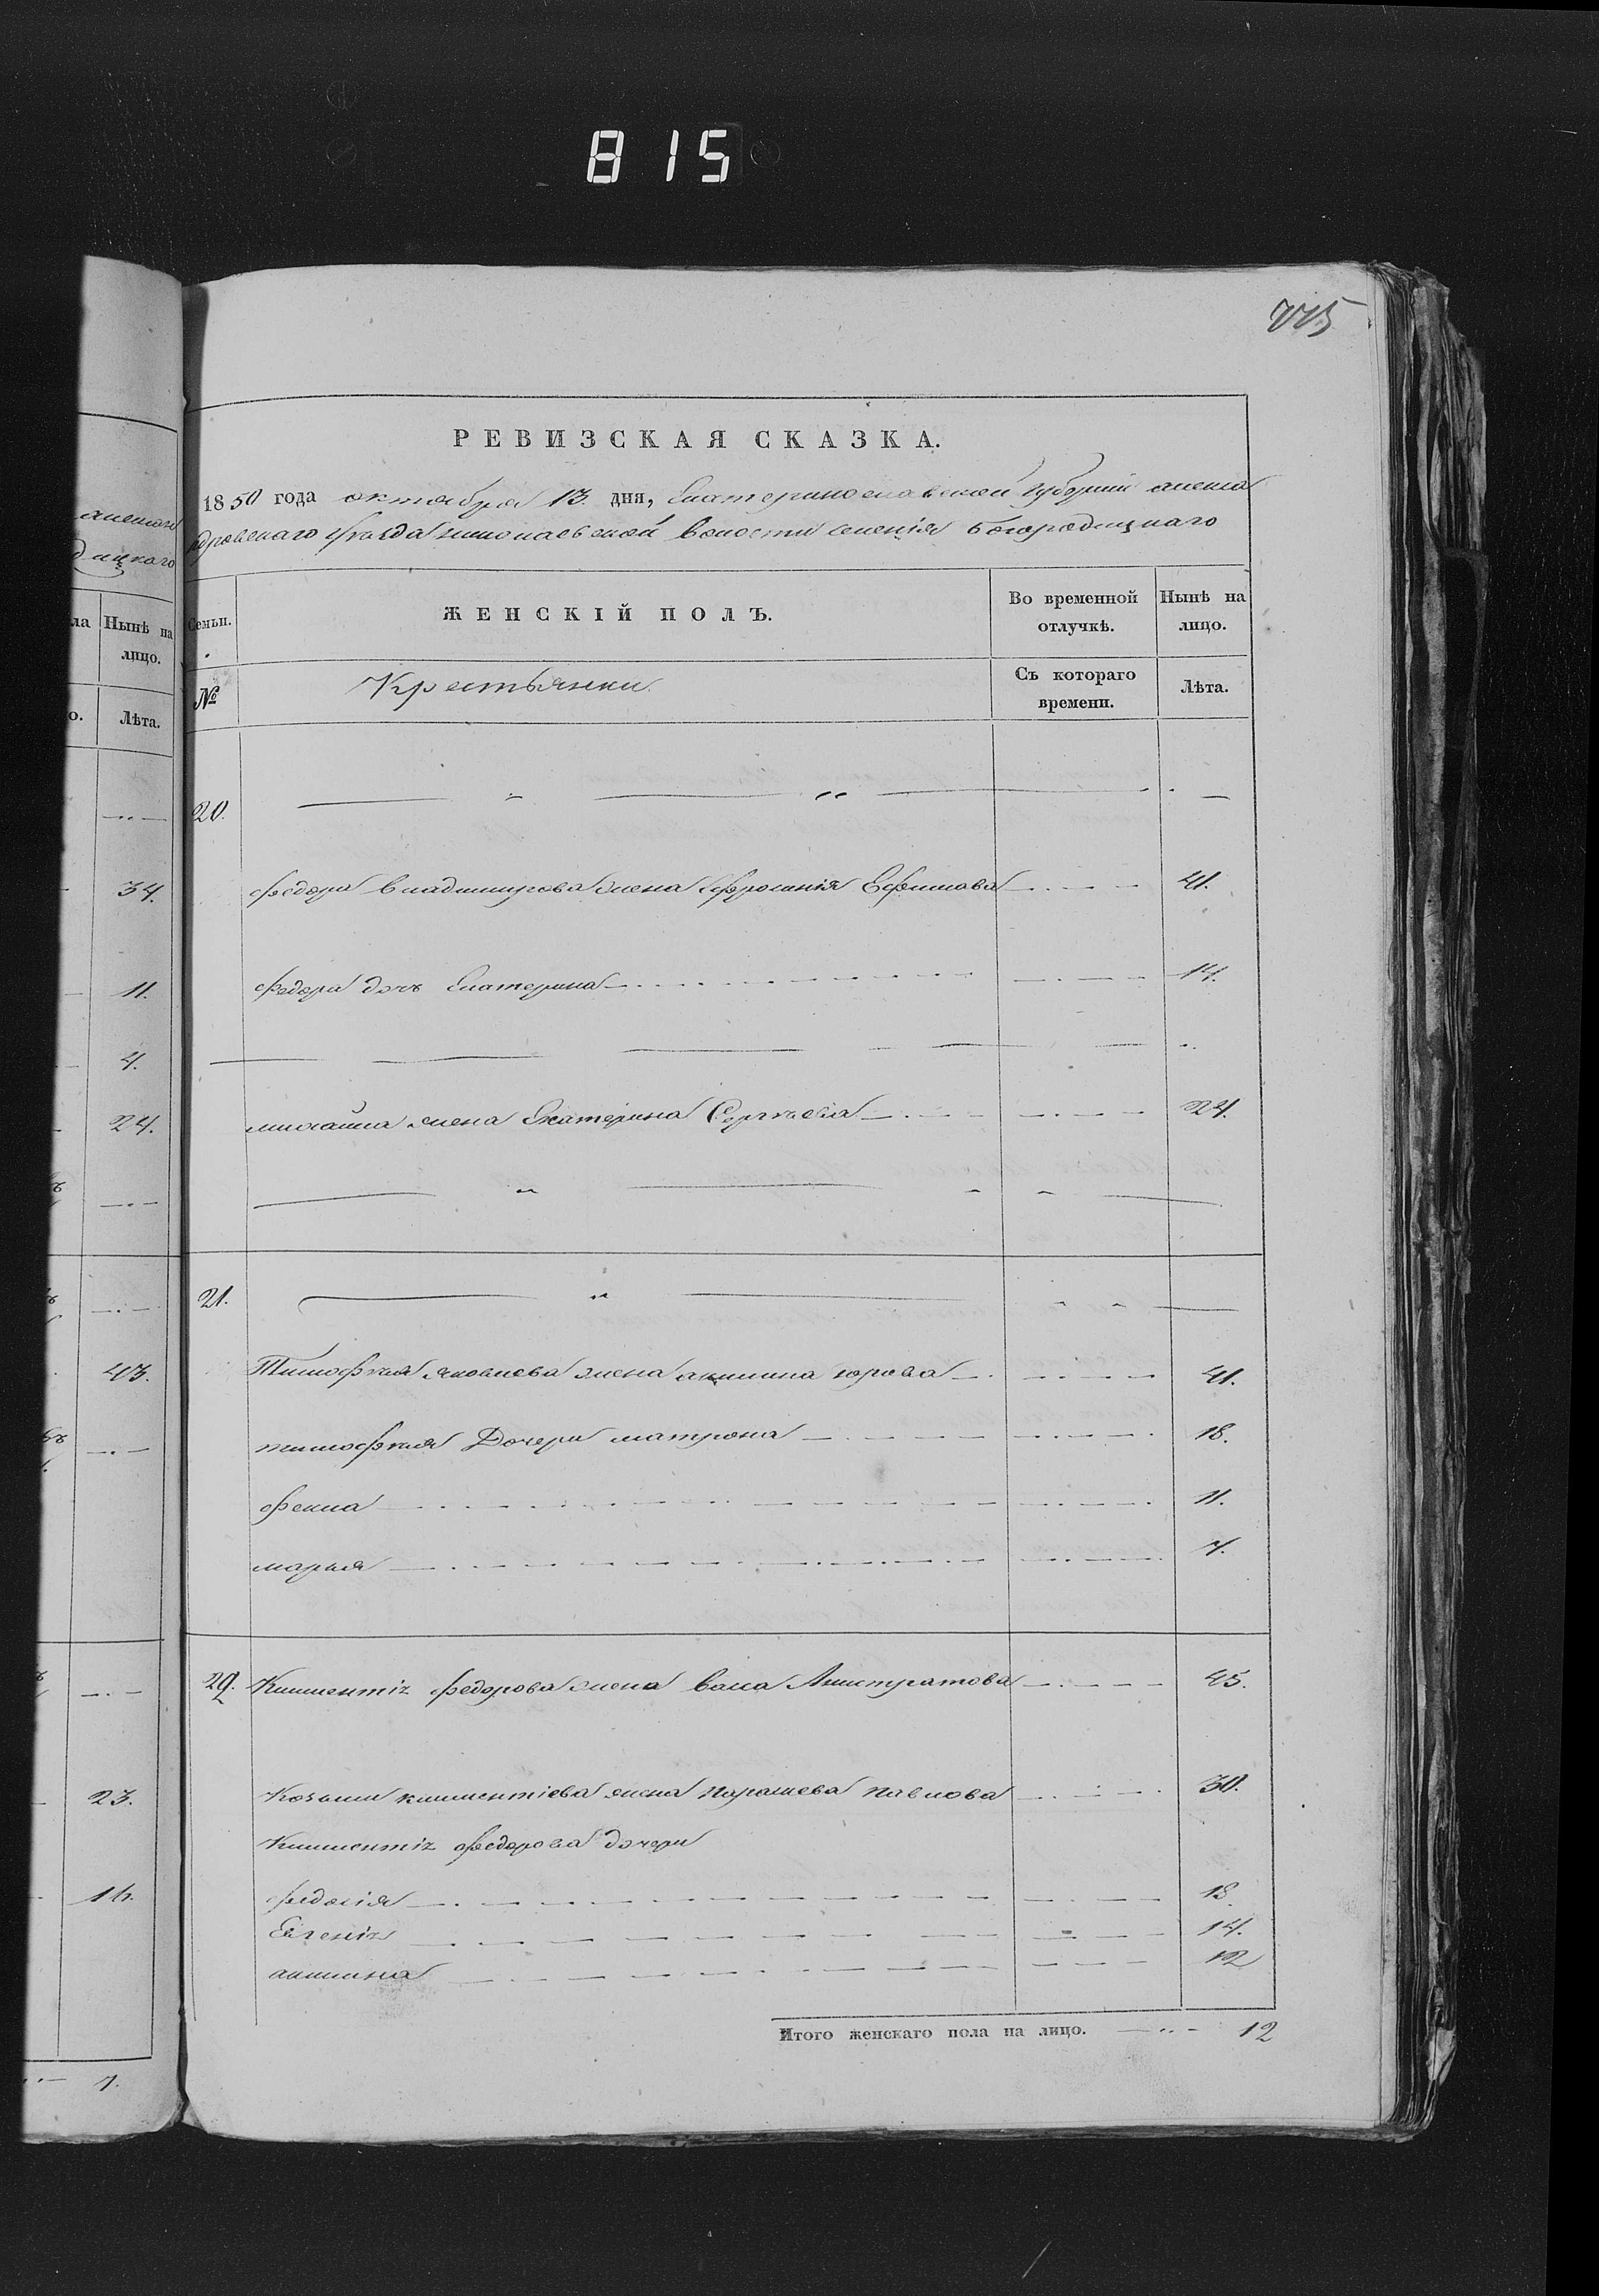 815
775
РЕВИЗСКАЯ СКАЗКА.
1850 года октября 13 дня, Екатеринославской губерніи алекса
ндровскаго уѣзда николаевской волости селенія богородицкаго
Семьи.
ЖЕНСКІЙ ПОЛЪ.
Во временной отлучкѣ.
Нынѣ на лицо.
№
Крестьянки.
Съ котораго времени.
Лѣта.
20.
Федора владимирова жена Ефросинія Ефимова 41.
Федора дочь Екатерина 14.
михайла жена Екатерина Сергѣева 24.
21.
Тимофѣя яковлева жена акилина юрова 41.
тимофѣя Дочери матрона 18.
фекла 11.
марья 7.
22. Климентія федорова жена васа Алистратова 45.
Козьмы климентіева жена парасковья павлова 30.
Климентія федорова дочери
федосія 18
Евгенія 14.
акилина 12
Итого женскаго пола на лицо. 12
алексан
дицкаго
ла
Нынѣ на лицо.
о.
Лѣта.
34.
11.
4.
24.
43.
23.
16.
7.